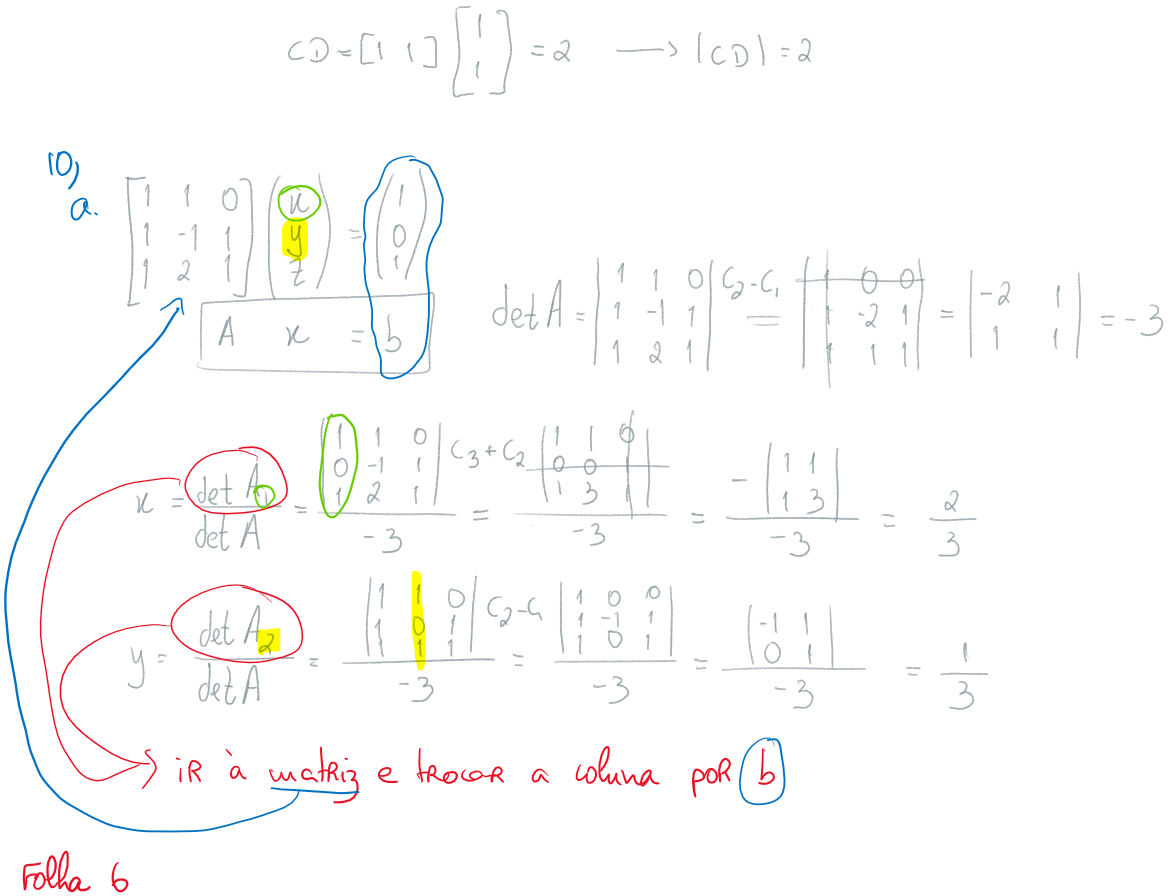 CD = [1 1] [1 1] = 2 → |CD| = 2
10,
a.
[1 1 0] (x) = (1)
[1 -1 1] (y) (0)
[1 2 1] (z) (1)
A x = b
det A = |1 1 0| C2-C1 |1 0 0| = |-2 1| = -3
|1 -1 1| = |1 -2 1| |1 1|
|1 2 1| |1 1 1|
x = det A1 / det A = |1 1 0; 0 -1 1; 1 2 1| / -3 C3+C2 = |1 1 0; 0 0 1; 1 3 1| / -3 = -|1 1; 1 3| / -3 = 2/3
y = det A2 / det A = |1 1 0; 1 0 1; 1 1 1| / -3 C2-C1 = |1 0 0; 1 -1 1; 1 0 1| / -3 = |-1 1; 0 1| / -3 = 1/3
iR à matriz e trocar a coluna por b
Folha 6